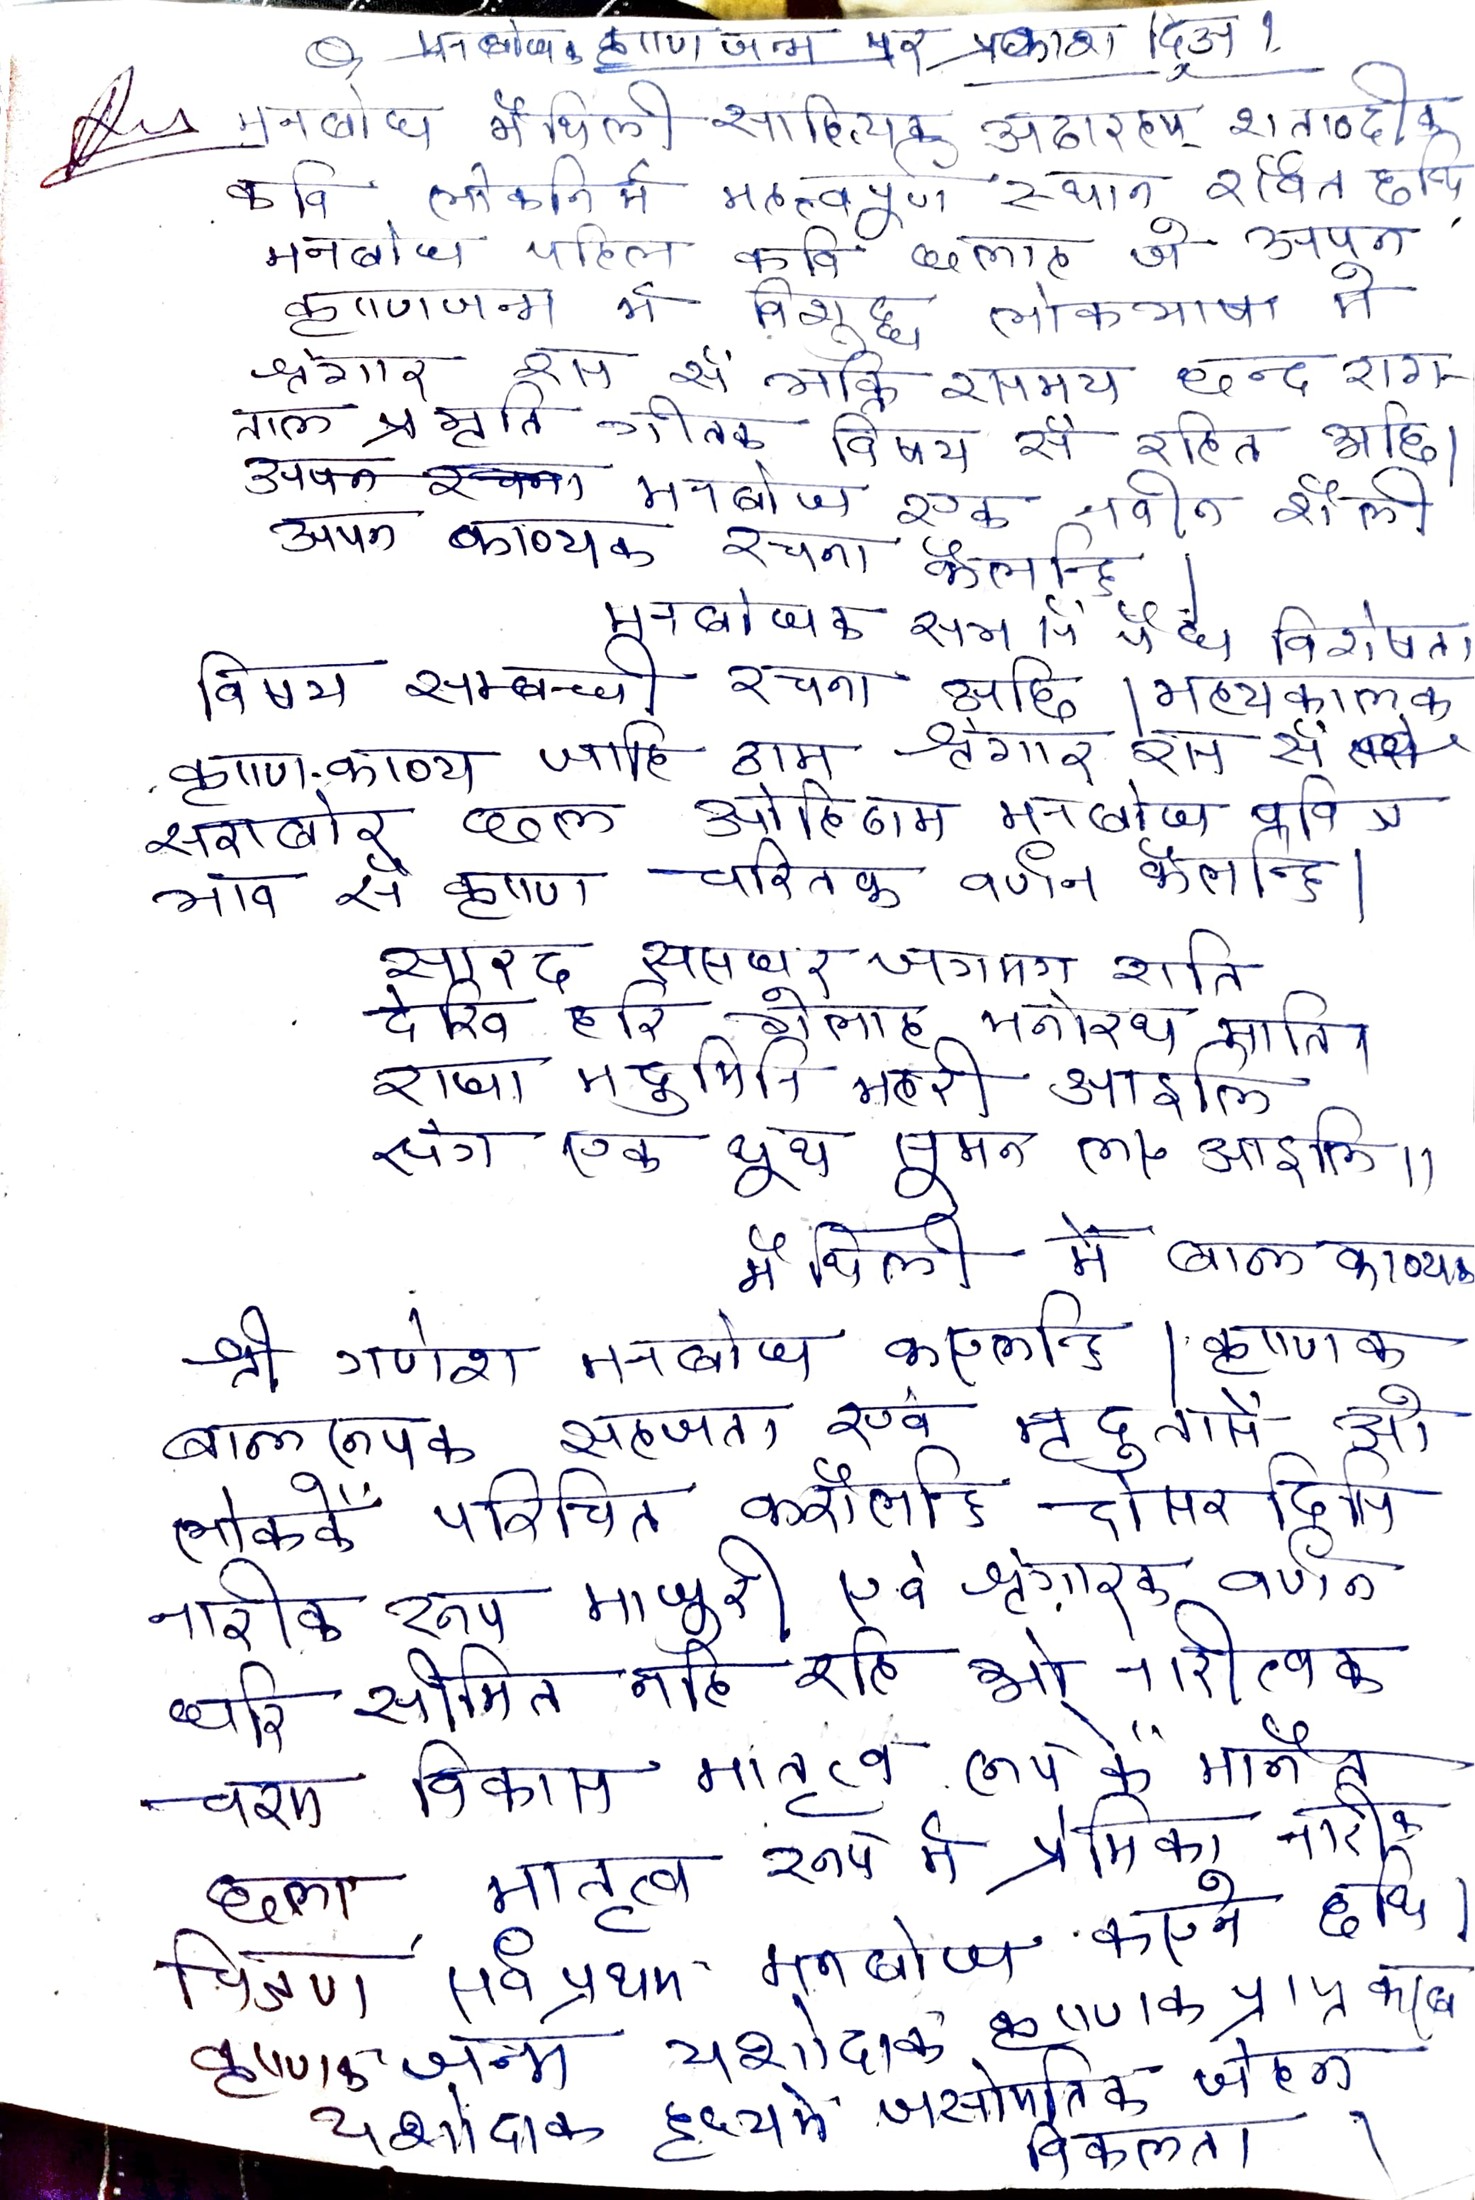 Q मनबोधक कृष्णजन्म पर प्रकाश दिअ ?
Ans मनबोध मैथिली साहित्यक अठारहम् शताब्दीक
कवि लोकनिमे महत्वपूर्ण स्थान रखैत छथि
मनबोध पहिल कवि छलाह जे अपन
कृष्णजन्म मे विशुद्ध लोकभाषा मे
श्रृंगार रस सँ भक्ति रसमय छन्द राग-
ताल प्रभृति गीतक विषय सँ रहित अछि।
अपन रचना मनबोध एक नवीन शैली
अपन काव्यक रचना कैलन्हि।
मनबोधक सभ सँ पैघ विशेषता
विषय सम्बन्धी रचना अछि। मध्यकालक
कृष्ण-काव्य जाहि ठाम श्रृंगार रस सँ
सराबोर छल ओहिठाम मनबोध पवित्र
भाव सँ कृष्ण चरितक वर्णन कैलन्हि।
सारद ससधर जगमग राति
देखि हरि गेलाह मनोरथ माति।
राधा महरी आइलि
संग एक यूथ सुमन लए आइलि॥
मैथिली मे बाल काव्यक
श्री गणेश मनबोध कएलन्हि। कृष्णक
बालरूपक सहजता एवं मृदुतासँ ओ
लोककेँ परिचित करौलन्हि दोसर दिसि
नारीक रूप माधुरी एवं श्रृंगारक वर्णन
धरि सीमित नहि रहि ओ नारीत्वक
चरम विकास मातृत्व रूप केँ मानैत
छला मातृत्व रूप मे प्रेमिका नारीक
चित्रण सर्वप्रथम मनबोध कएने छथि।
कृष्णक जन्म यशोदाक कृष्णक प्राप्त करब
यशोदाक हृदयमे जसोमतिक जेहन
विकलता।